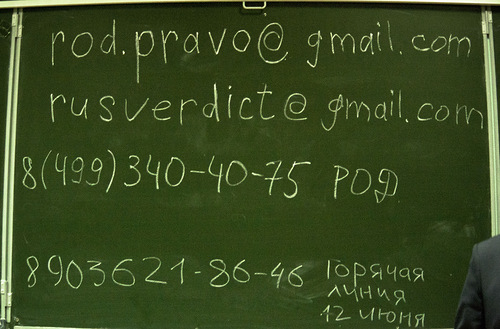 rod.pravo@gmail.com
rusverdict@gmail.com
8(499)340-40-75 РОД
8903621-86-46 Горячая
линия
12 июня